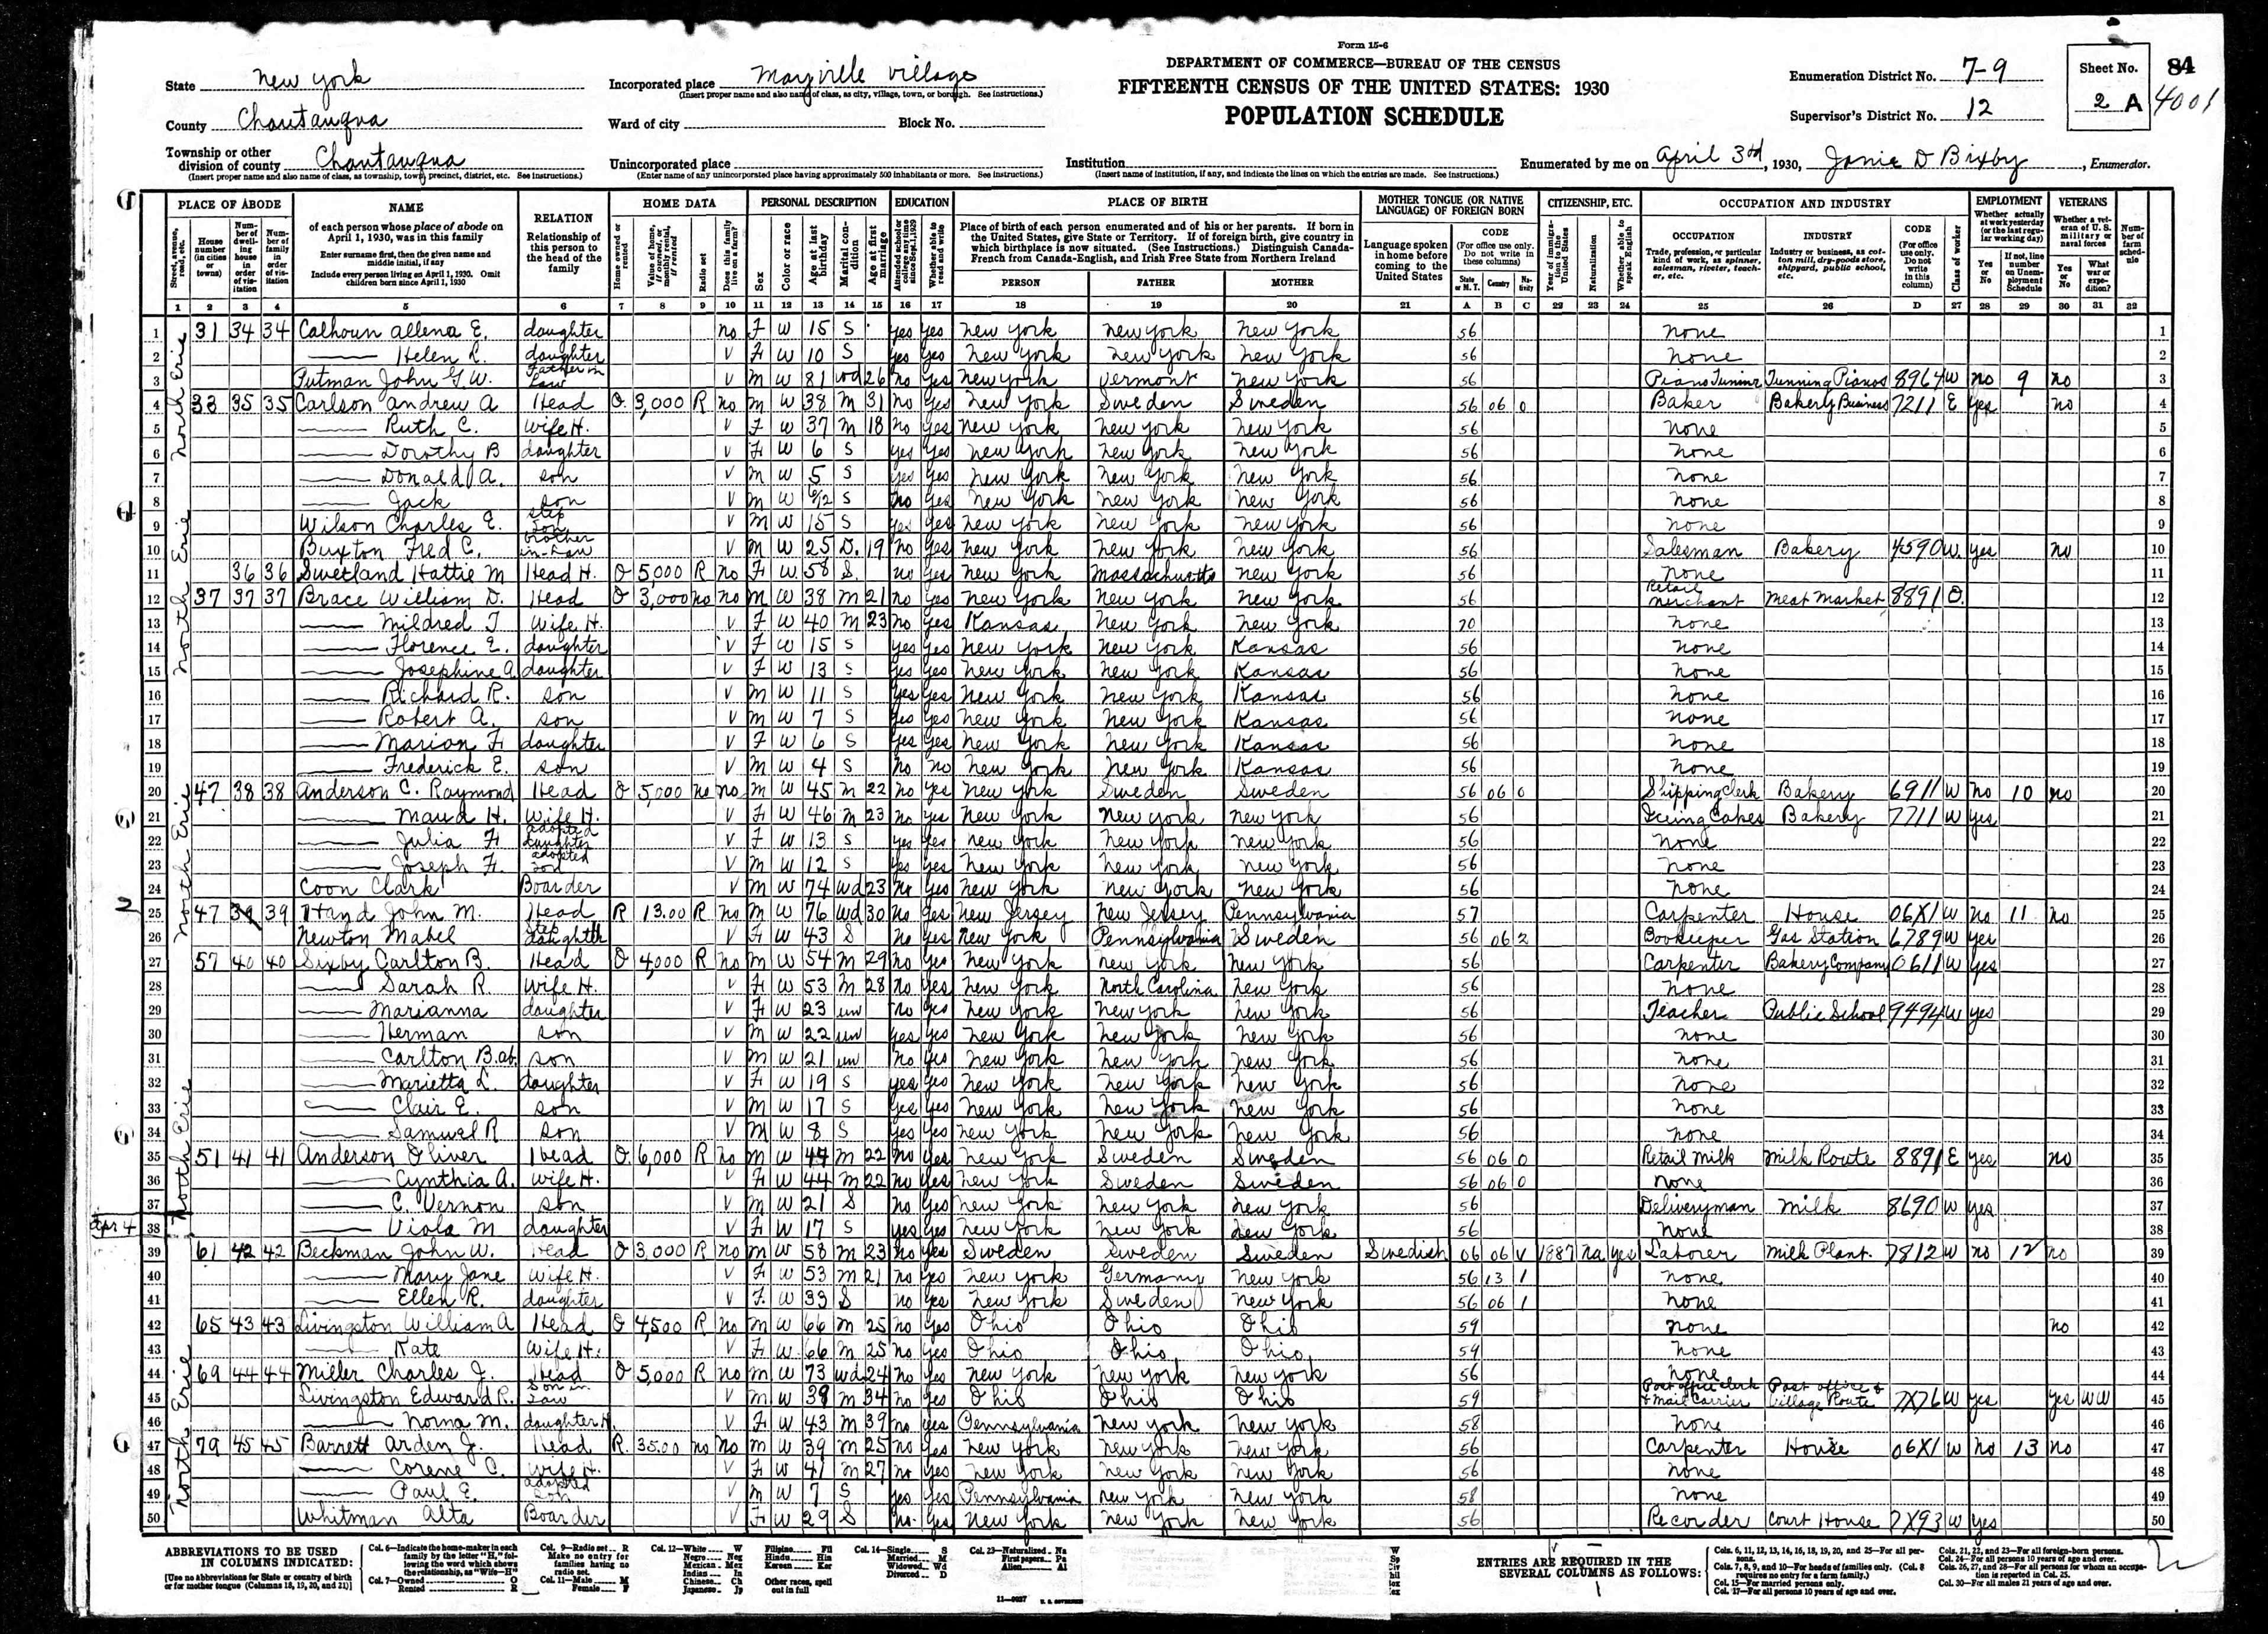 Form 15-6
DEPARTMENT OF COMMERCE—BUREAU OF THE CENSUS
FIFTEENTH CENSUS OF THE UNITED STATES: 1930
POPULATION SCHEDULE
State New York
County Chautauqua
Township or other division of county Chautauqua
(Insert proper name and also name of class, as township, town, precinct, district, etc. See instructions.)
Incorporated place Mayville Village
(Insert proper name and also name of class, as city, village, town, or borough. See instructions.)
Ward of city Block No.
Unincorporated place
(Enter name of any unincorporated place having approximately 500 inhabitants or more. See instructions.)
Institution
(Insert name of institution, if any, and indicate the lines on which the entries are made. See instructions.)
Enumeration District No. 7-9
Supervisor's District No. 12
Sheet No. 2 A
4001
Enumerated by me on April 3rd, 1930, Janie D Bixby, Enumerator.
PLACE OF ABODE NAME RELATION HOME DATA PERSONAL DESCRIPTION EDUCATION PLACE OF BIRTH MOTHER TONGUE (OR NATIVE LANGUAGE) OF FOREIGN BORN CITIZENSHIP, ETC. OCCUPATION AND INDUSTRY EMPLOYMENT VETERANS
1 31 34 34 Calhoun Allena E. daughter no F W 15 S yes yes New York New York New York 56 none 1
2 Helen L. daughter V F W 10 S yes yes New York New York New York 56 none 2
3 Putman John G.W. Father in law V M W 81 Wd 26 no yes New York Vermont New York 56 Piano Tuning Tunning Pianos 8964 W no 9 no 3
4 33 35 35 Carlson Andrew A Head O 3,000 R no M W 38 M 31 no yes New York Sweden Sweden 56 06 0 Baker Bakery Business 7211 E yes no 4
5 Ruth C. wife H. V F W 37 M 18 no yes New York New York New York 56 none 5
6 Dorothy B daughter V F W 6 S yes yes New York New York New York 56 none 6
7 Donald A. son V M W 5 S yes yes New York New York New York 56 none 7
8 Jack son V M W 6/12 S no yes New York New York New York 56 none 8
9 Wilson Charles E. step son V M W 15 S yes yes New York New York New York 56 none 9
10 Buxton Fred C. brother in-law V M W 25 D. 19 no yes New York New York New York 56 Salesman Bakery 4590 W yes no 10
11 36 36 Swetland Hattie M Head H. O 5,000 R no F W 58 S no yes New York Massachusetts New York 56 none 11
12 37 37 37 Brace William D. Head O 3,000 no no M W 38 M 21 no yes New York New York New York 56 Retail merchant Meat Market 8891 O. 12
13 Mildred J wife H. V F W 40 M 23 no yes Kansas New York New York 70 none 13
14 Florence E. daughter V F W 15 S yes yes New York New York Kansas 56 none 14
15 Josephine A daughter V F W 13 S yes yes New York New York Kansas 56 none 15
16 Richard R. son V M W 11 S yes yes New York New York Kansas 56 none 16
17 Robert A. son V M W 7 S yes yes New York New York Kansas 56 none 17
18 Marion F daughter V F W 6 S yes yes New York New York Kansas 56 none 18
19 Frederick E. son V M W 4 S no no New York New York Kansas 56 none 19
20 47 38 38 Anderson C. Raymond Head O 5,000 no no M W 45 M 22 no yes New York Sweden Sweden 56 06 0 Shipping Clerk Bakery 6911 W no 10 no 20
21 Maud H. wife H. V F W 46 M 23 no yes New York New York New York 56 Icing Cakes Bakery 7711 W yes 21
22 Julia F adopted daughter V F W 13 S yes yes New York New York New York 56 none 22
23 Joseph F. adopted son V M W 12 S yes yes New York New York New York 56 none 23
24 Coon Clark Boarder V M W 74 Wd 23 no yes New York New York New York 56 none 24
25 47 39 39 Hand John M. Head R 13.00 R no M W 76 Wd 30 no yes New Jersey New Jersey Pennsylvania 57 Carpenter House 06X1 W no 11 no 25
26 Newton Mabel Step daughter V F W 43 S no yes New York Pennsylvania Sweden 56 06 2 Bookeeper Gas Station 6789 W yes 26
27 57 40 40 Sixby Carlton B. Head O 4,000 R no M W 54 M 29 no yes New York New York New York 56 Carpenter Bakery Company 0611 W yes 27
28 Sarah R. wife H. V F W 53 M 28 no yes New York North Carolina New York 56 none 28
29 Marianna daughter V F W 23 un no yes New York New York New York 56 Teacher Public School 9494 W yes 29
30 Herman son V M W 22 un yes yes New York New York New York 56 none 30
31 Carlton B. ab. son V M W 21 un no yes New York New York New York 56 none 31
32 Marietta L. daughter V F W 19 S yes yes New York New York New York 56 none 32
33 Clair E. son V M W 17 S yes yes New York New York New York 56 none 33
34 Samuel R son V M W 8 S yes yes New York New York New York 56 none 34
35 51 41 41 Anderson Oliver Head O. 6,000 R no M W 44 M 22 no yes New York Sweden Sweden 56 06 0 Retail Milk Milk Route 8891 E yes no 35
36 Cynthia A. wife H. V F W 44 M 22 no yes New York Sweden Sweden 56 06 0 none 36
37 C. Vernon son V M W 21 S no yes New York New York New York 56 Deliveryman Milk 8690 W yes 37
Apr 4
38 Viola M daughter V F W 17 S yes yes New York New York New York 56 none 38
39 61 42 42 Beckman John W. Head O 3,000 R no M W 58 M 23 no yes Sweden Sweden Sweden Swedish 06 06 V 1887 na yes Laborer Milk Plant. 7812 W no 12 no 39
40 Mary Jane wife H. V F W 53 M 21 no yes New York Germany New York 56 13 1 none 40
41 Ellen R. daughter V F. W 33 S no yes New York Sweden New York 56 06 1 none 41
42 65 43 43 Livingston William A Head O 4,500 R no M W 66 M 25 no yes Ohio Ohio Ohio 59 none no 42
43 Kate wife H. V F W 66 M 25 no yes Ohio Ohio Ohio 59 none 43
44 69 44 44 Miller Charles J. Head O 5,000 R no M W 73 Wd 24 no yes New York New York New York 56 none 44
45 Livingston Edward R. Son in law V M W 39 M 34 no yes Ohio Ohio Ohio 59 Post office clerk & Mail Carrier Post office & Village Route 7X76 W yes yes WW 45
46 Norma M. daughter H. V F W 43 M 39 no yes Pennsylvania New York New York 58 none 46
47 79 45 45 Barrett Arden J. Head R. 35.00 no no M W 39 M 25 no yes New York New York New York 56 Carpenter House 06X1 W no 13 no 47
48 Corene C. wife H. V F W 41 M 27 no yes New York New York New York 56 none 48
49 Paul E. adopted son V M W 7 S yes yes Pennsylvania New York New York 58 none 49
50 Whitman Alta Boarder V F W 29 S no. yes New York New York New York 56 Recorder Court House 7X93 W yes 50
North Erie
ABBREVIATIONS TO BE USED IN COLUMNS INDICATED:
[Use no abbreviations for State or country of birth or for mother tongue (Columns 18, 19, 20, and 21)]
ENTRIES ARE REQUIRED IN THE SEVERAL COLUMNS AS FOLLOWS: